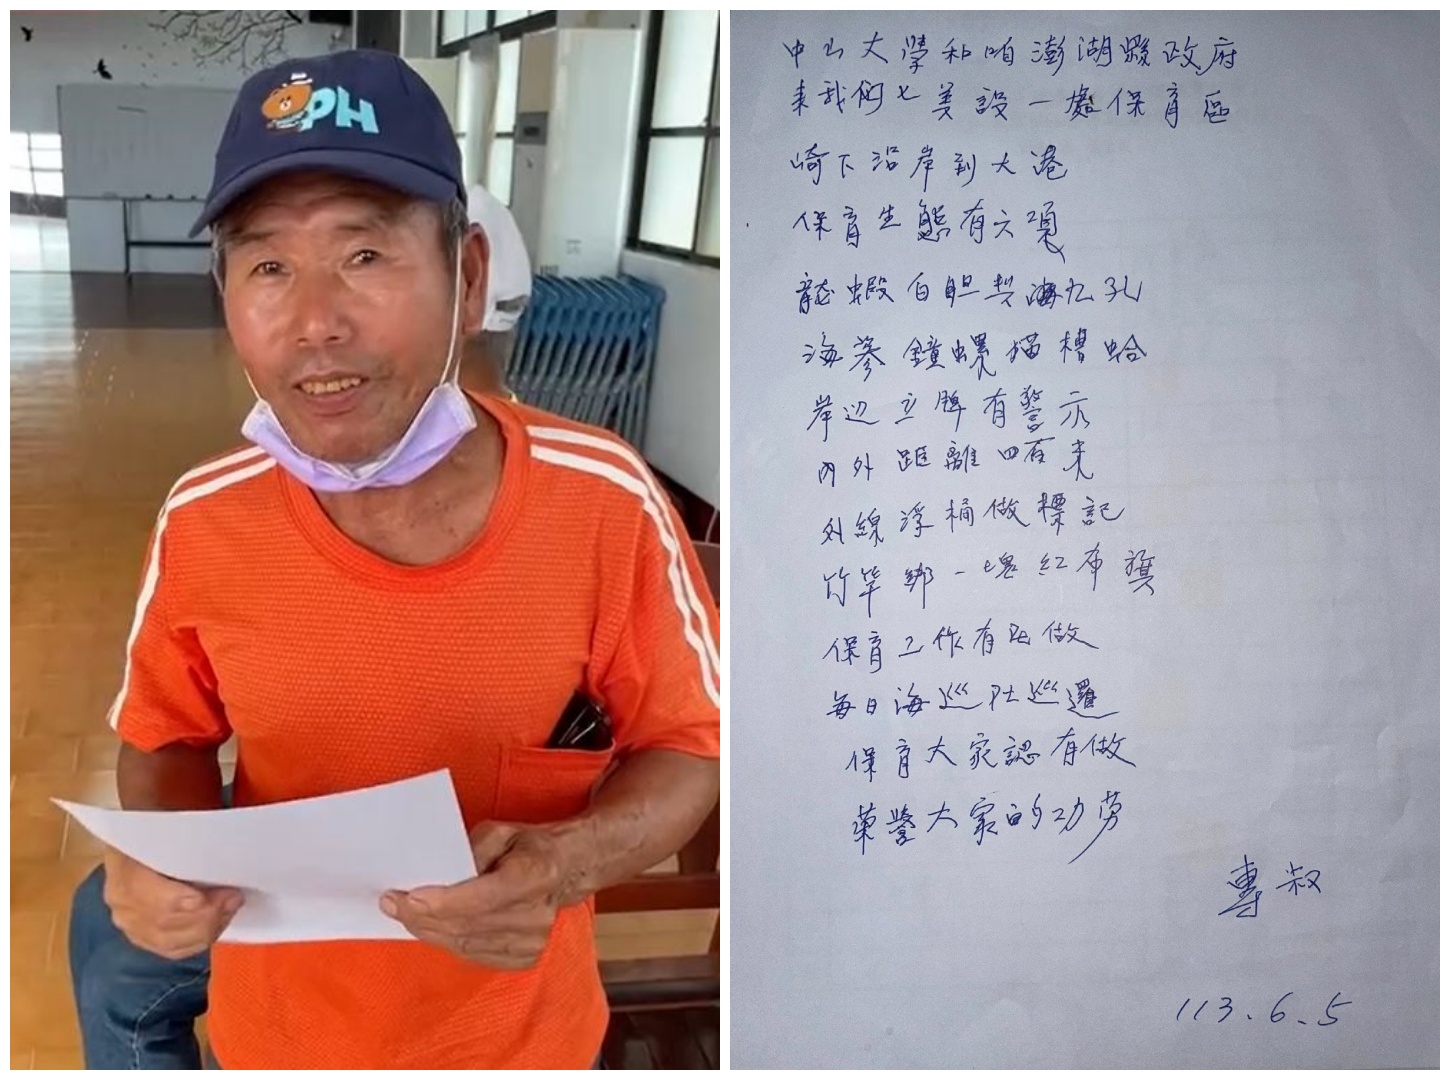 PH
中山大學和咱澎湖縣政府
來我們七美設一處保育區
崎下沿岸到大港
保育生態有六項
龍蝦白胆共海九孔
海參鐘螺描槽蛤
岸边立牌有警示
內外距離四百米
外線浮桶做標記
竹竿綁一塊紅布旗
保育工作有在做
每日海巡社巡邏
保育大家認有做
榮譽大家的功勞
專叔
113.6.5